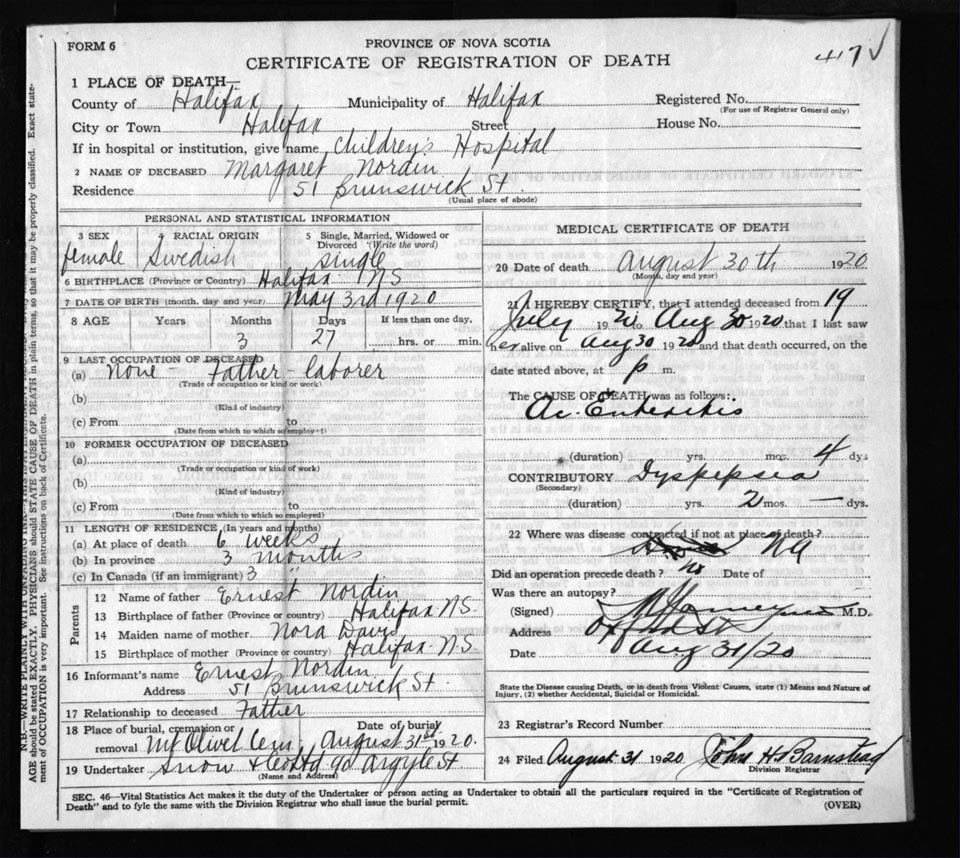 FORM 6
PROVINCE OF NOVA SCOTIA
CERTIFICATE OF REGISTRATION OF DEATH
47 √
1 PLACE OF DEATH—
County of Halifax Municipality of Halifax Registered No.
(For use of Registrar General only)
City or Town Halifax Street House No.
If in hospital or institution, give name Children's Hospital
2 NAME OF DECEASED Margaret Nordin
Residence 51 Brunswick St.
(Usual place of abode)
PERSONAL AND STATISTICAL INFORMATION
3 SEX 4 RACIAL ORIGIN 5 Single, Married, Widowed or Divorced (Write the word)
female Swedish single
6 BIRTHPLACE (Province or Country) Halifax N S
7 DATE OF BIRTH (month, day and year) May 3rd 1920
8 AGE Years Months Days If less than one day,
3 27 hrs. or min.
9 LAST OCCUPATION OF DECEASED
(a) None - Father - laborer
(Trade or occupation or kind or work)
(b)
(Kind of industry)
(c) From to
(Date from which to which so employed)
10 FORMER OCCUPATION OF DECEASED
(a)
(Trade or occupation or kind of work)
(b)
(Kind of industry)
(c) From to
(Date from which to which so employed)
11 LENGTH OF RESIDENCE (In years and months)
(a) At place of death 6 weeks
(b) In province 3 months
(c) In Canada (if an immigrant) 3 "
Parents
12 Name of father Ernest Nordin
13 Birthplace of father (Province or country) Halifax N.S.
14 Maiden name of mother Nora Davis
15 Birthplace of mother (Province or country) Halifax N.S.
16 Informant's name Ernest Nordin
Address 51 Brunswick St.
17 Relationship to deceased Father
18 Place of burial, cremation or removal Mt Olivet Cem. Date of burial August 31st 1920.
19 Undertaker Snow & Co Ltd 90 Argyle St
(Name and Address)
MEDICAL CERTIFICATE OF DEATH
20 Date of death August 30th 1920
(Month, day and year)
21 I HEREBY CERTIFY, that I attended deceased from 19
July 1920 to Aug 30 1920 that I last saw
her alive on Aug 30 1920 and that death occurred, on the
date stated above, at p m.
The CAUSE OF DEATH was as follows:
Ac. Enteritis
(duration) yrs. mos. 4 dys
CONTRIBUTORY Dyspepsia
(Secondary)
(duration) yrs. 2 mos. — dys.
22 Where was disease contracted if not at place of death?
Did an operation precede death? No Date of
Was there an autopsy?
(Signed) M.D.
Address
Date Aug 31/20
State the Disease causing Death, or in death from Violent Causes, state (1) Means and Nature of
Injury, (2) whether Accidental, Suicidal or Homicidal.
23 Registrar's Record Number
24 Filed August 31 1920 John H Barnstead
Division Registrar
SEC. 46—Vital Statistics Act makes it the duty of the Undertaker or person acting as Undertaker to obtain all the particulars required in the "Certificate of Registration of
Death" and to fyle the same with the Division Registrar who shall issue the burial permit.
(OVER)
AGE should be stated EXACTLY. PHYSICIANS should STATE CAUSE OF DEATH in plain terms, so that it may be properly classified. Exact state-
ment of OCCUPATION is very important. See instructions on back of Certificate.